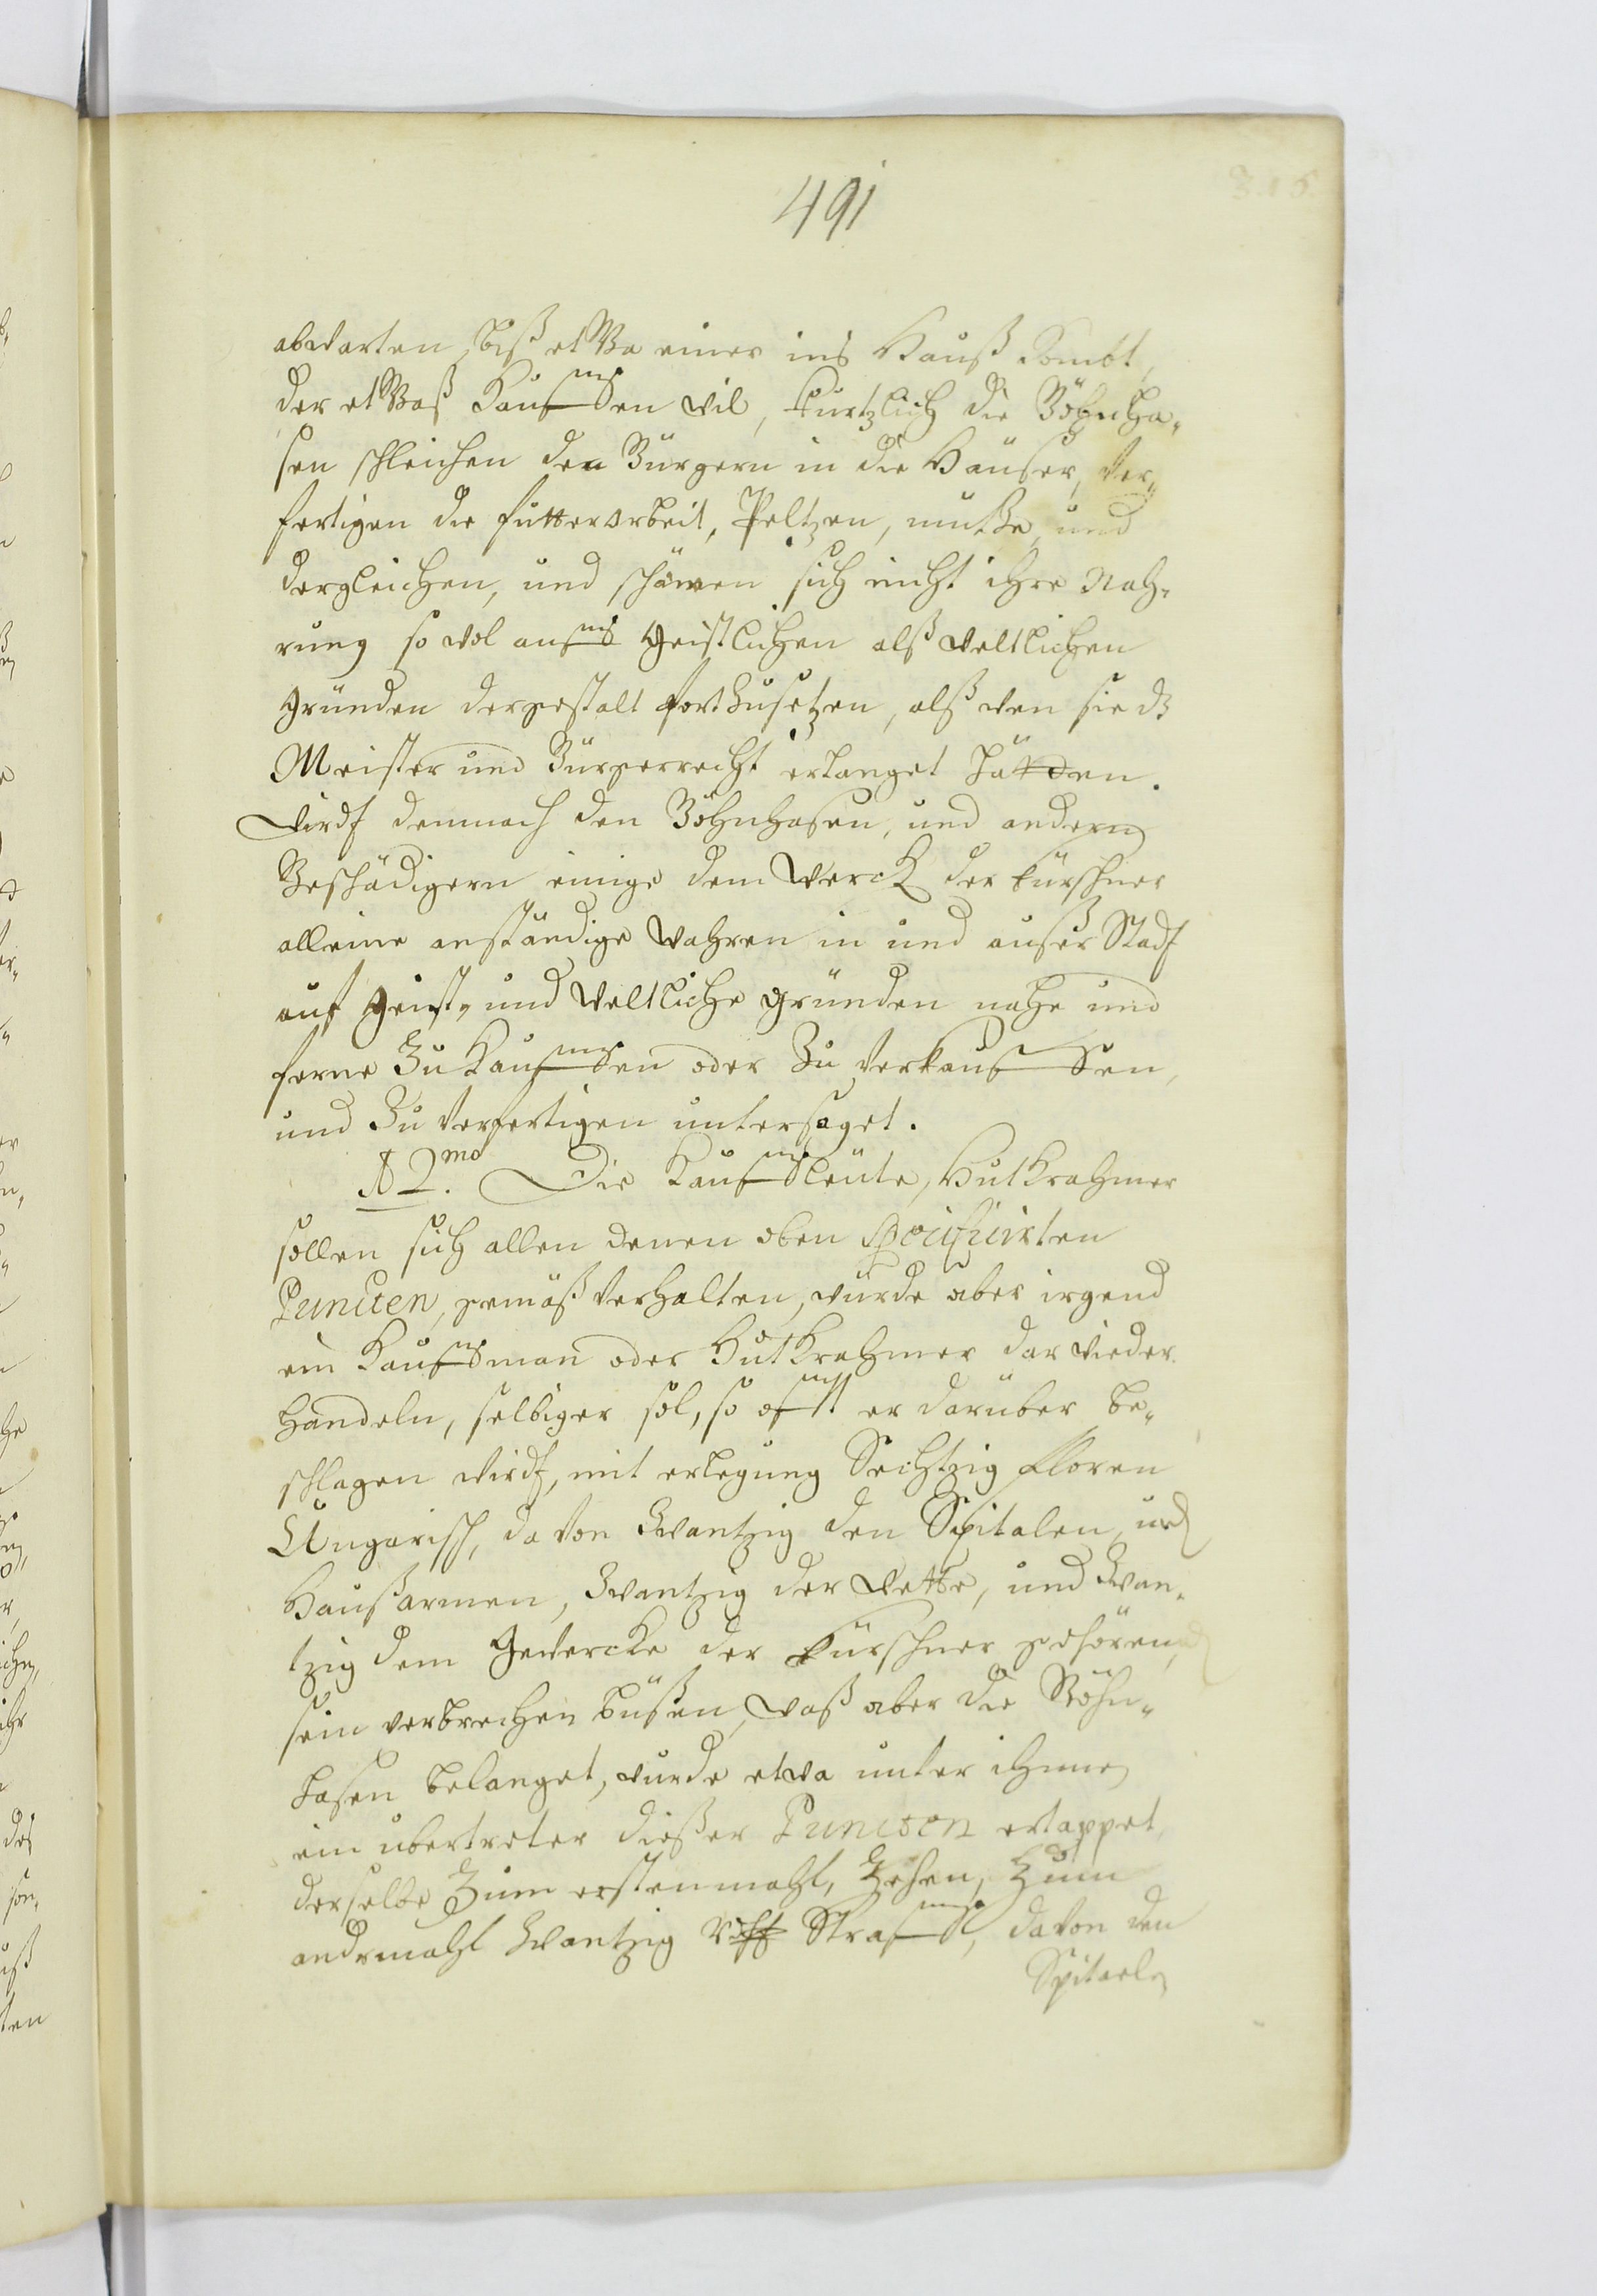 491
abwarten, biß etwa einer ins Hauß kombt,
der etwaß Kauffen wil, kurtzlich die Böhnha-
sen schleichen den Bürgern in die Häuser, ver-
fertigen die futterarbeit, Peltzen, mutze, und
dergleichen, und schämen sich nicht ihre Nah-
rung so wol auff Geistlichen alß weltlichen
gründen dergestalt fortzusetzen, alß wen sie dz
Meister und Bürgerrecht erlanget hätten.
Wirdt demnach den Böhnhasen, und andern
Beschädigern einige dem Werck der kürschner
alleine anständige wahren in und außer Stadt
auf geist- und weltliche gründen nahe und
ferne Zu Kauffen oder Zu verkauffen,
und Zu verfertigen untersaget.
A 2.mo Die Kauffleüte, Hutkrahmer
sollen sich allen denen oben specificirten
Puncten, gemäß verhalten, würde aber irgend
ein Kauffman oder Hutkrahmer dar wieder
handeln, selbiger sol, so offt er darüber be-
schlagen wirdt, mit erlegung Sechtzig floren
Ungarisch, davon Zwantzig den Spitalen, und
Haußarmen, Zwantzig der Wette, und Zwan-
tzig dem Gewercke der kürschner gehören,
sein verbrechen büßen, waß aber die Böhn-
hasen belanget, wurde etwa unter ihnen
ein ubertreter dießer Puncten ertappet,
derselbe Zum erstenmahl, Zehen, Zum
andermahl Zwantzig Straffe, davon den
Spitaelen